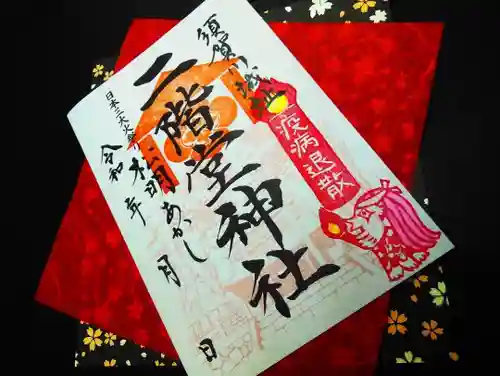 須賀川城址
二階堂神社
日本三大火祭
松明あかし
令和 年 月 日
疫病退散